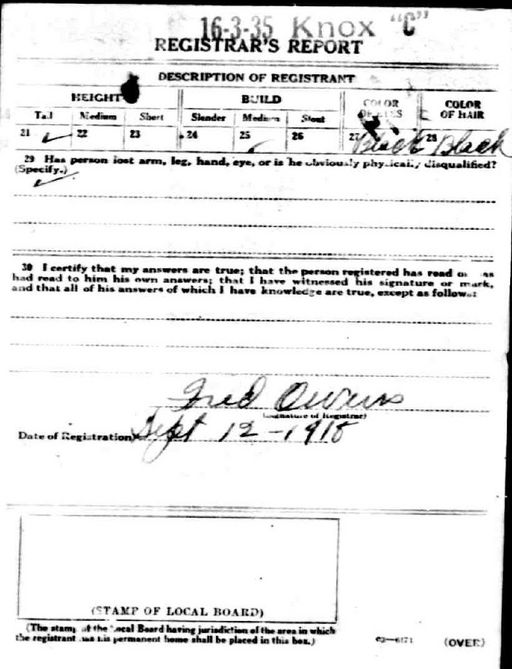 16-3-35 Knox "C"
REGISTRAR'S REPORT
DESCRIPTION OF REGISTRANT
HEIGHT BUILD COLOR OF EYES COLOR OF HAIR
Tall Medium Short Slender Medium Stout
21 ✓ 22 23 24 25 ✓ 26 27 Black 28 Black
29 Has person lost arm, leg, hand, eye, or is he obviously physically disqualified?
(Specify.)
30 I certify that my answers are true; that the person registered has read or has
had read to him his own answers; that I have witnessed his signature or mark,
and that all of his answers of which I have knowledge are true, except as follows:
Fred Owens
(Signature of Registrar)
Date of Registration Sept 12-1918
(STAMP OF LOCAL BOARD)
(The stamp of the Local Board having jurisdiction of the area in which
the registrant has his permanent home shall be placed in this box.)
03-6171 (OVER)